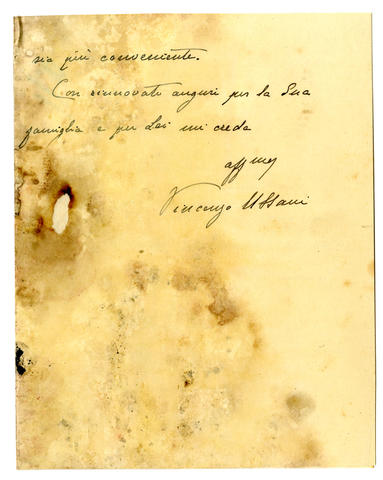 sia più conveniente.
Con rinnovati auguri per la Sua
famiglia e per Lei mi creda
aff mo
Vincenzo Ussani